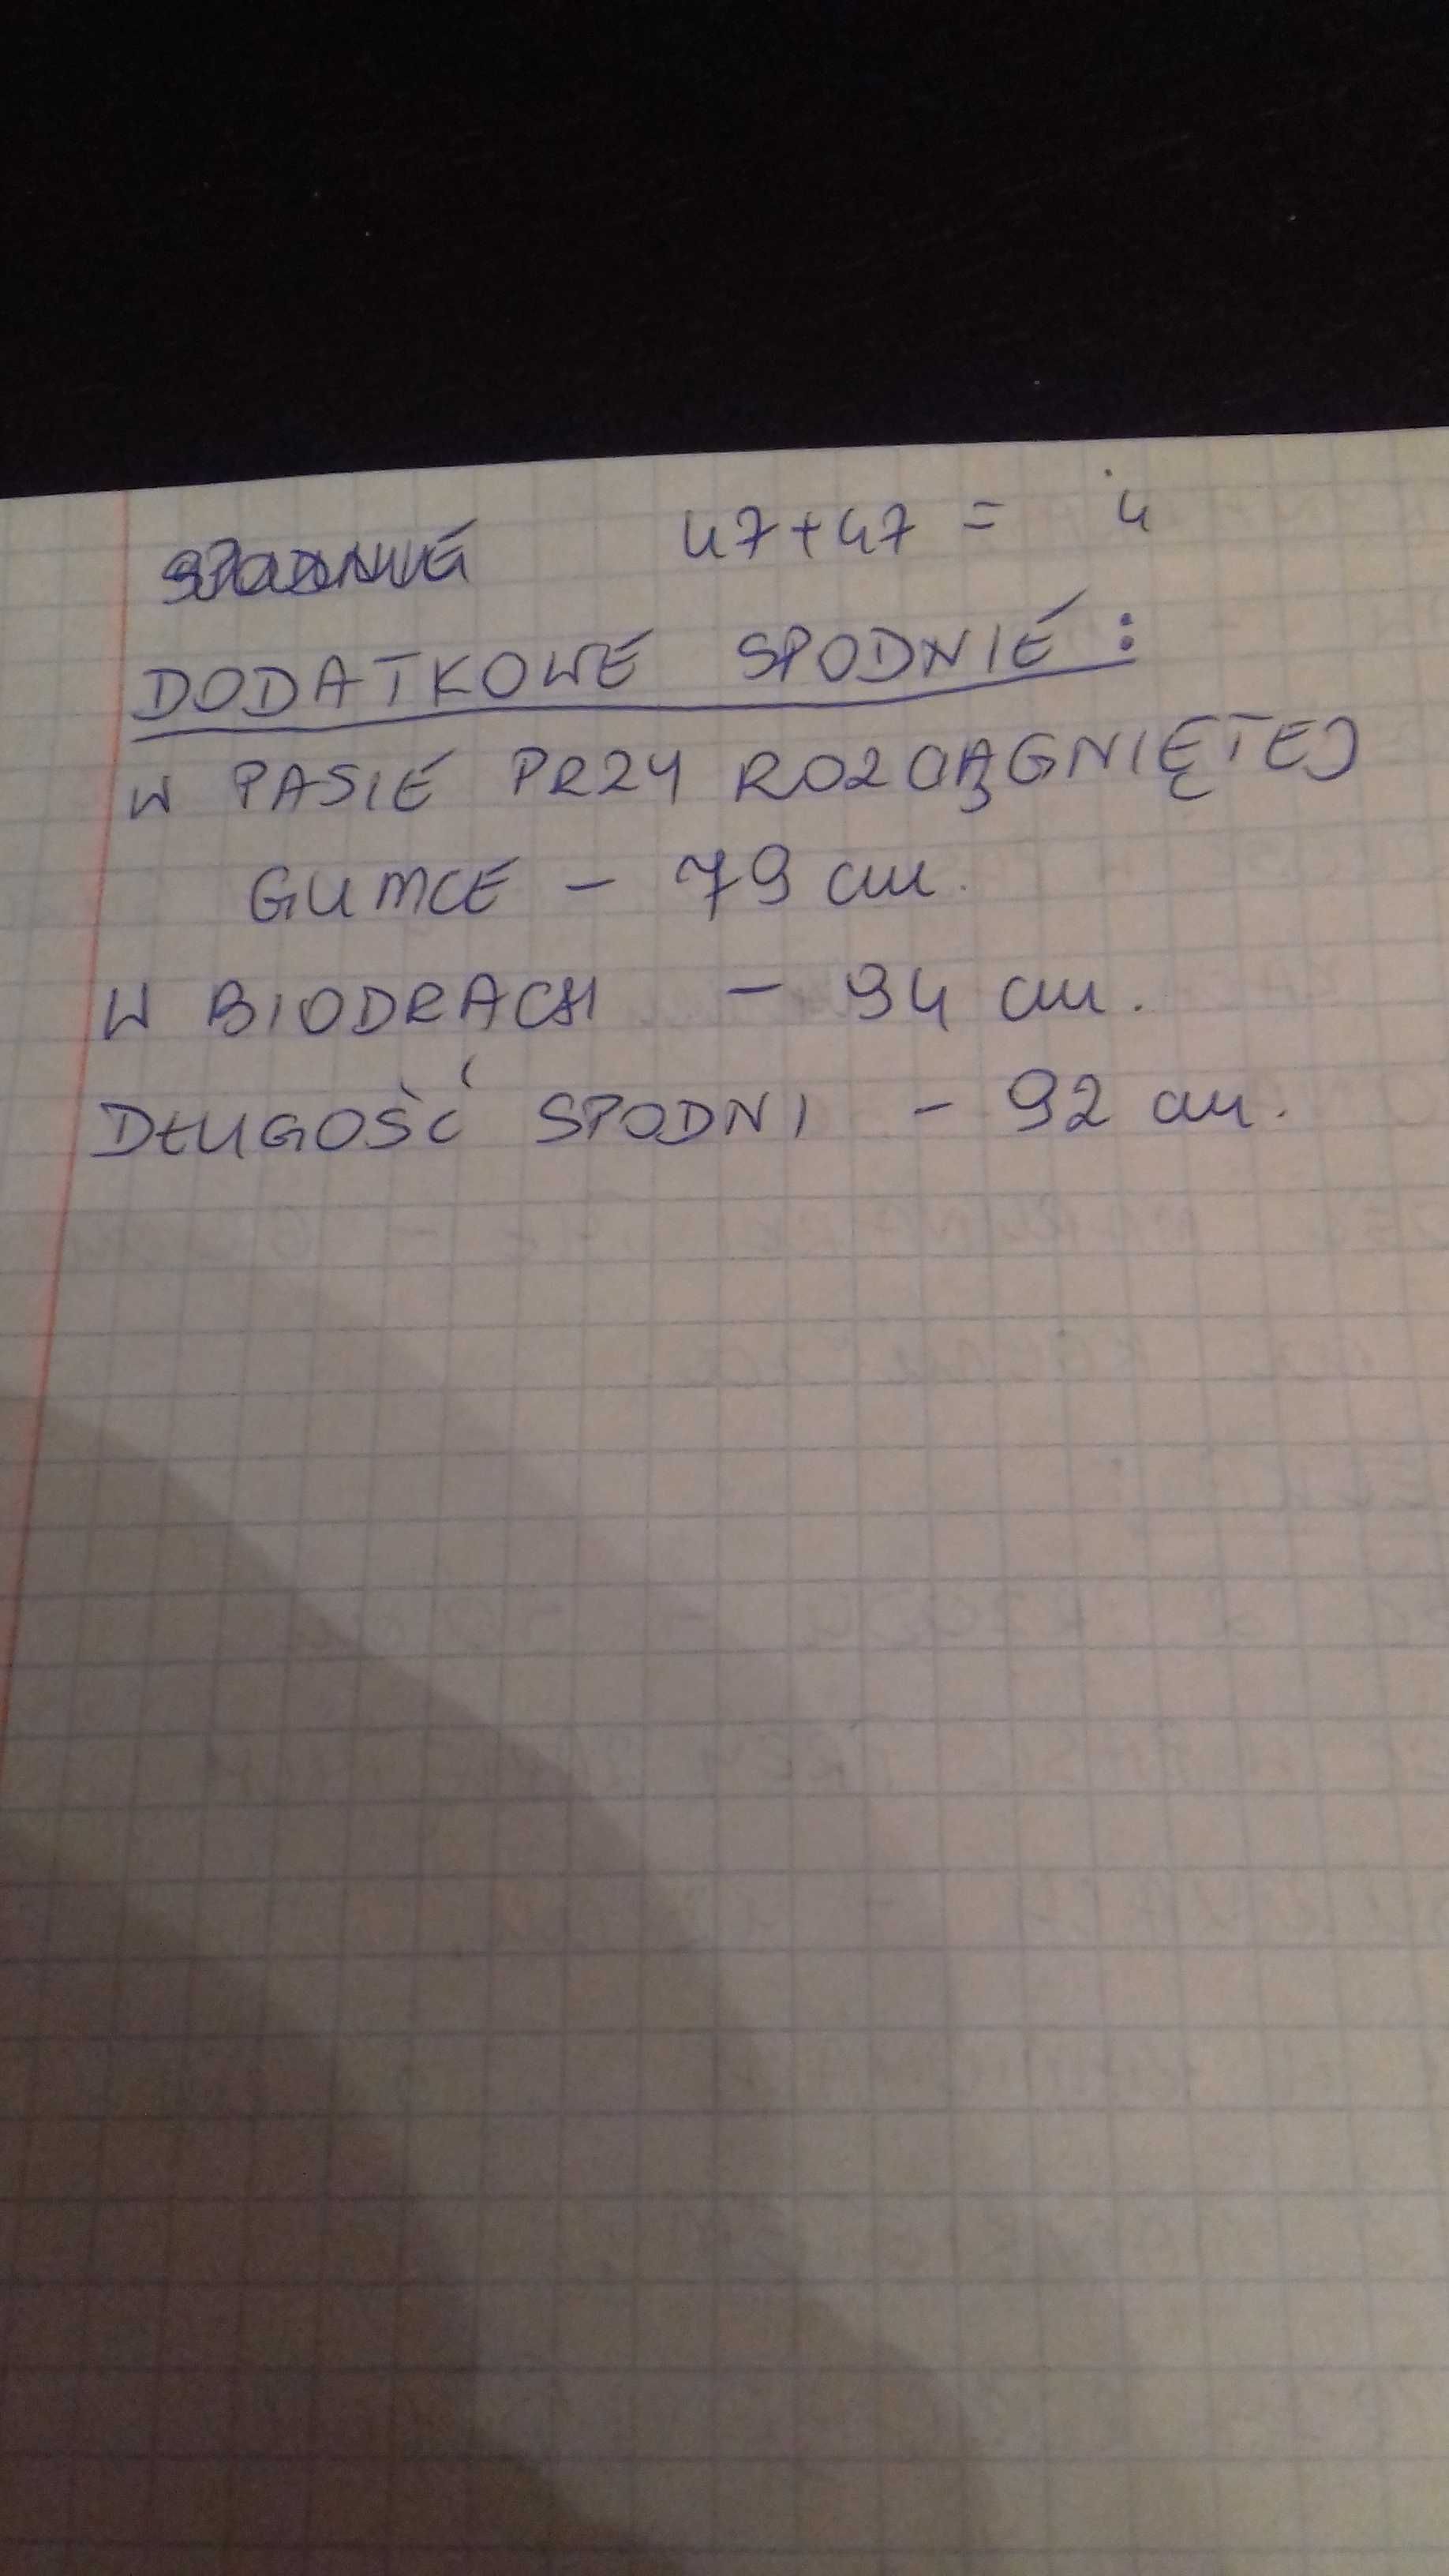 SPODNIE 47+47 = 4
DODATKOWE SPODNIE:
W PASIE PRZY ROZCIĄGNIĘTEJ
GUMCE - 79 cm.
W BIODRACH - 94 cm.
DŁUGOŚĆ SPODNI - 92 cm.